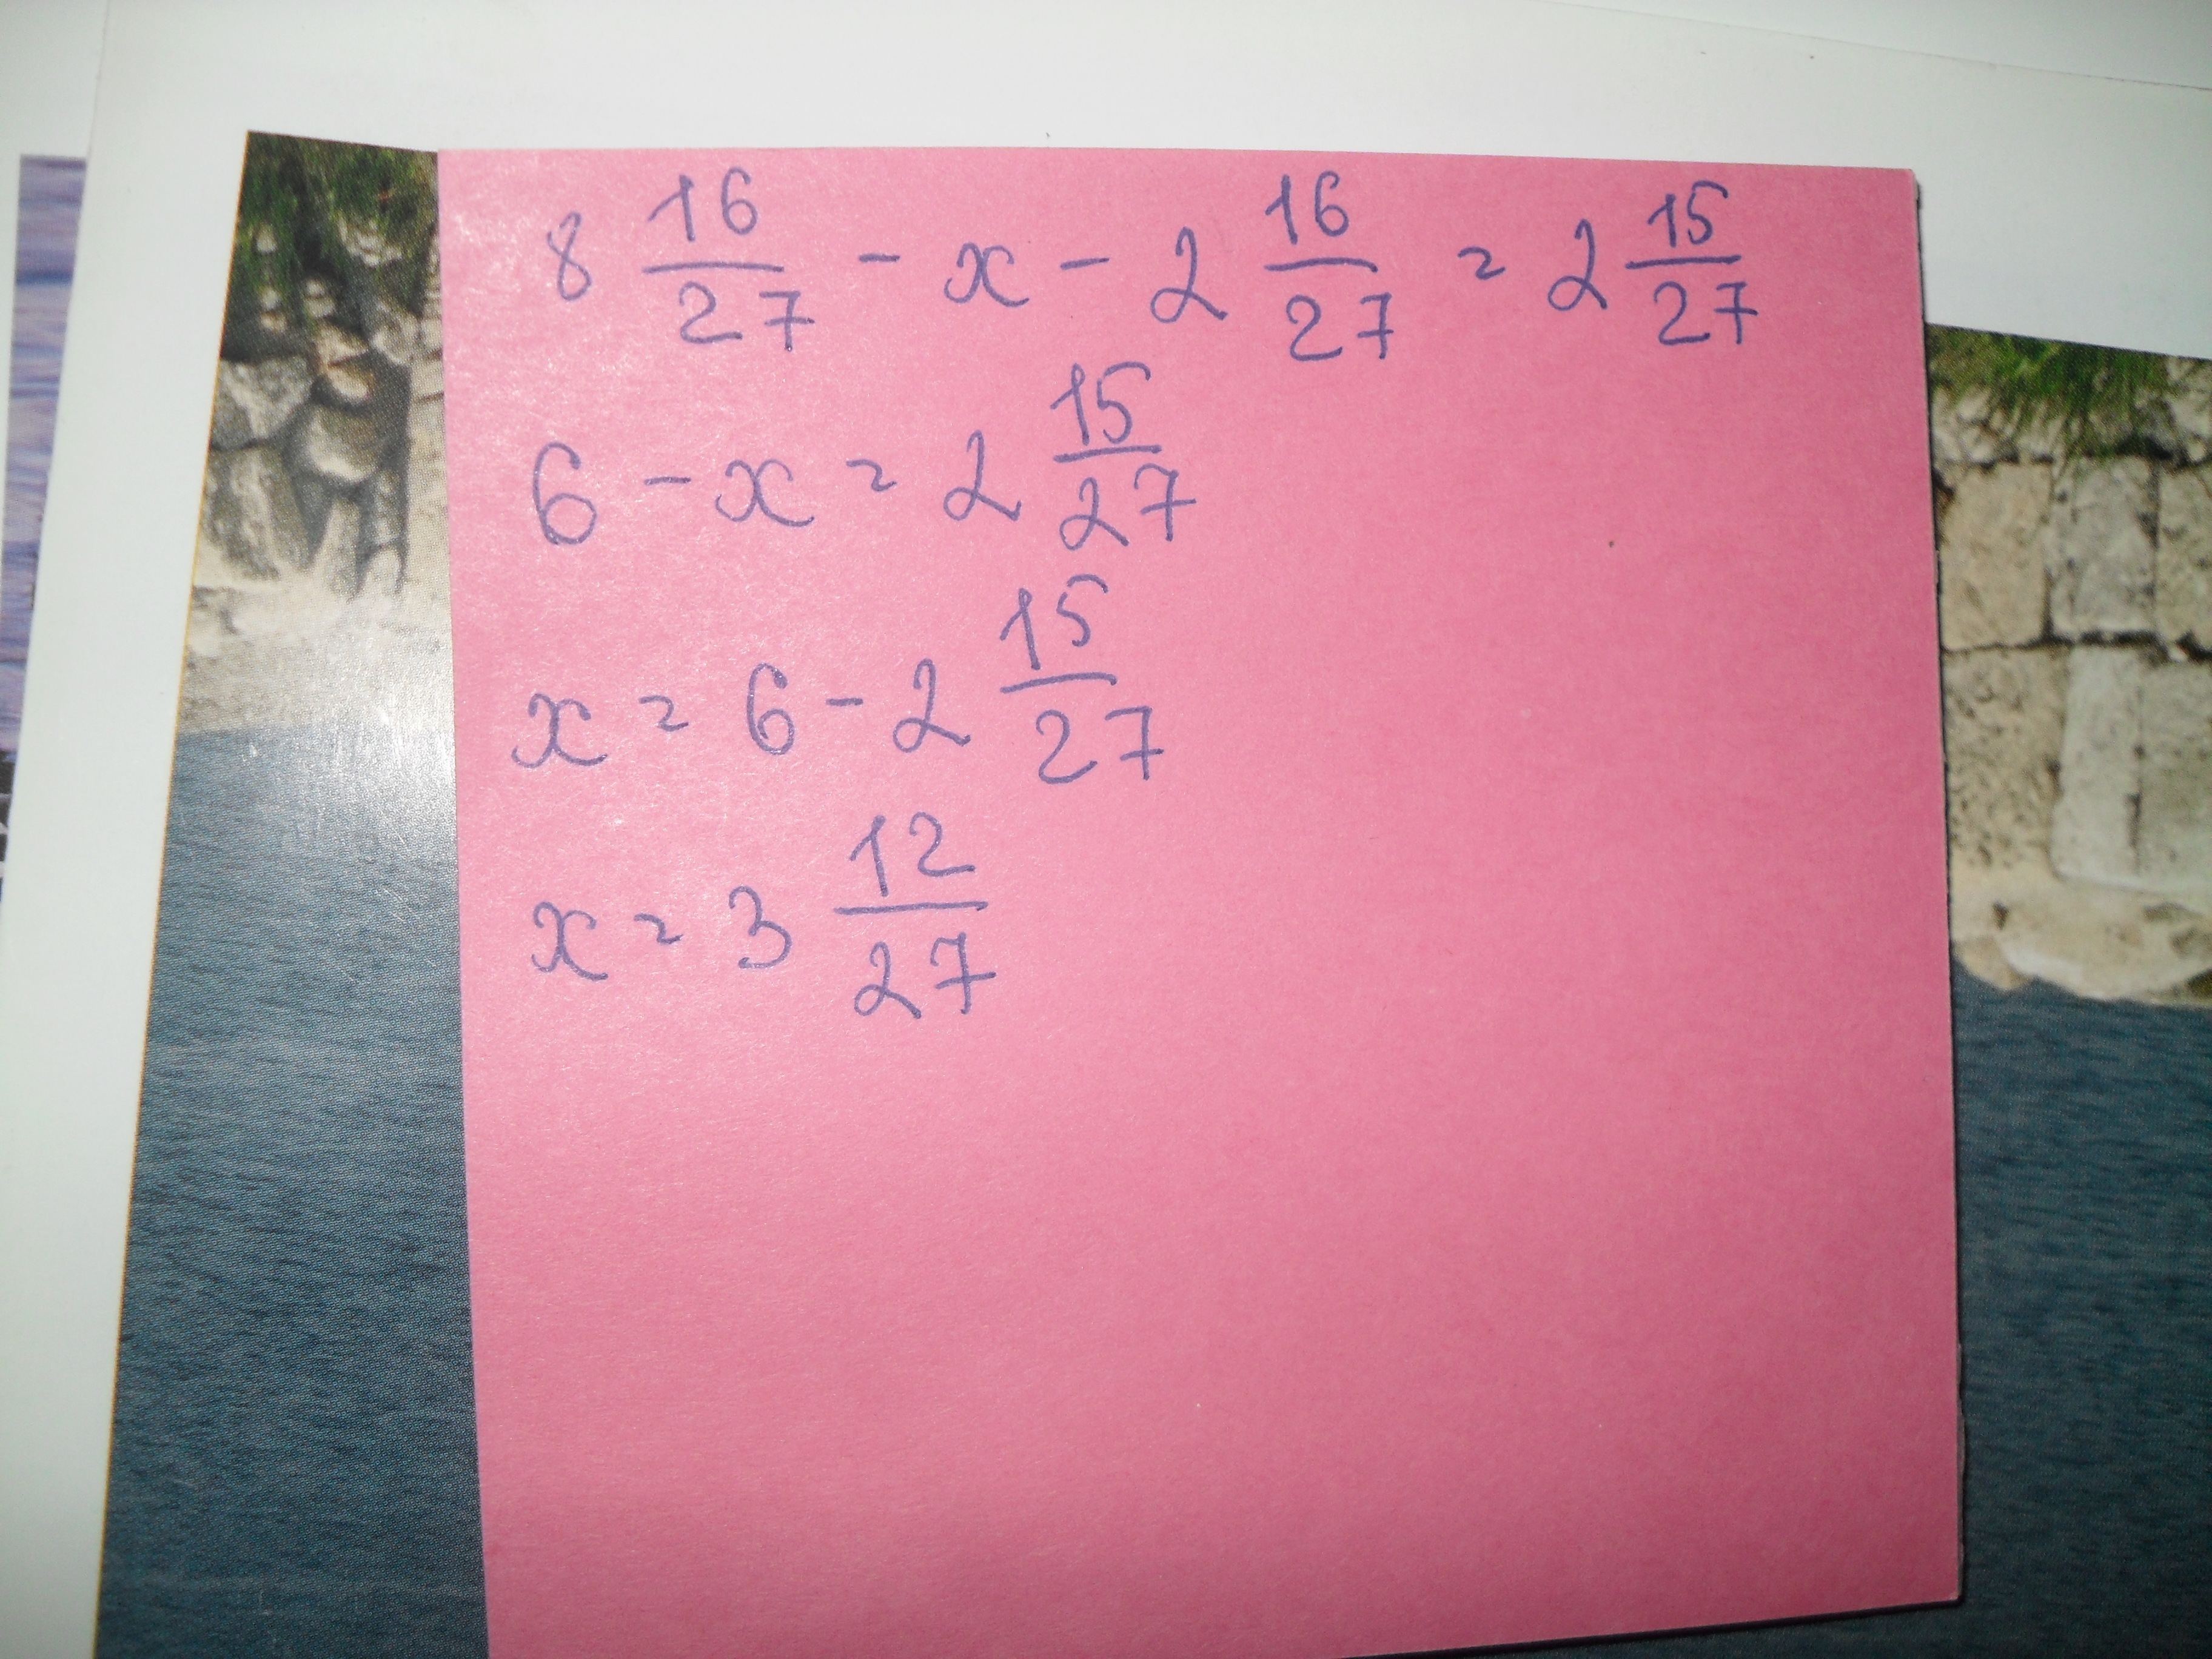 8 16/27 - x - 2 16/27 = 2 15/27
6 - x = 2 15/27
x = 6 - 2 15/27
x = 3 12/27